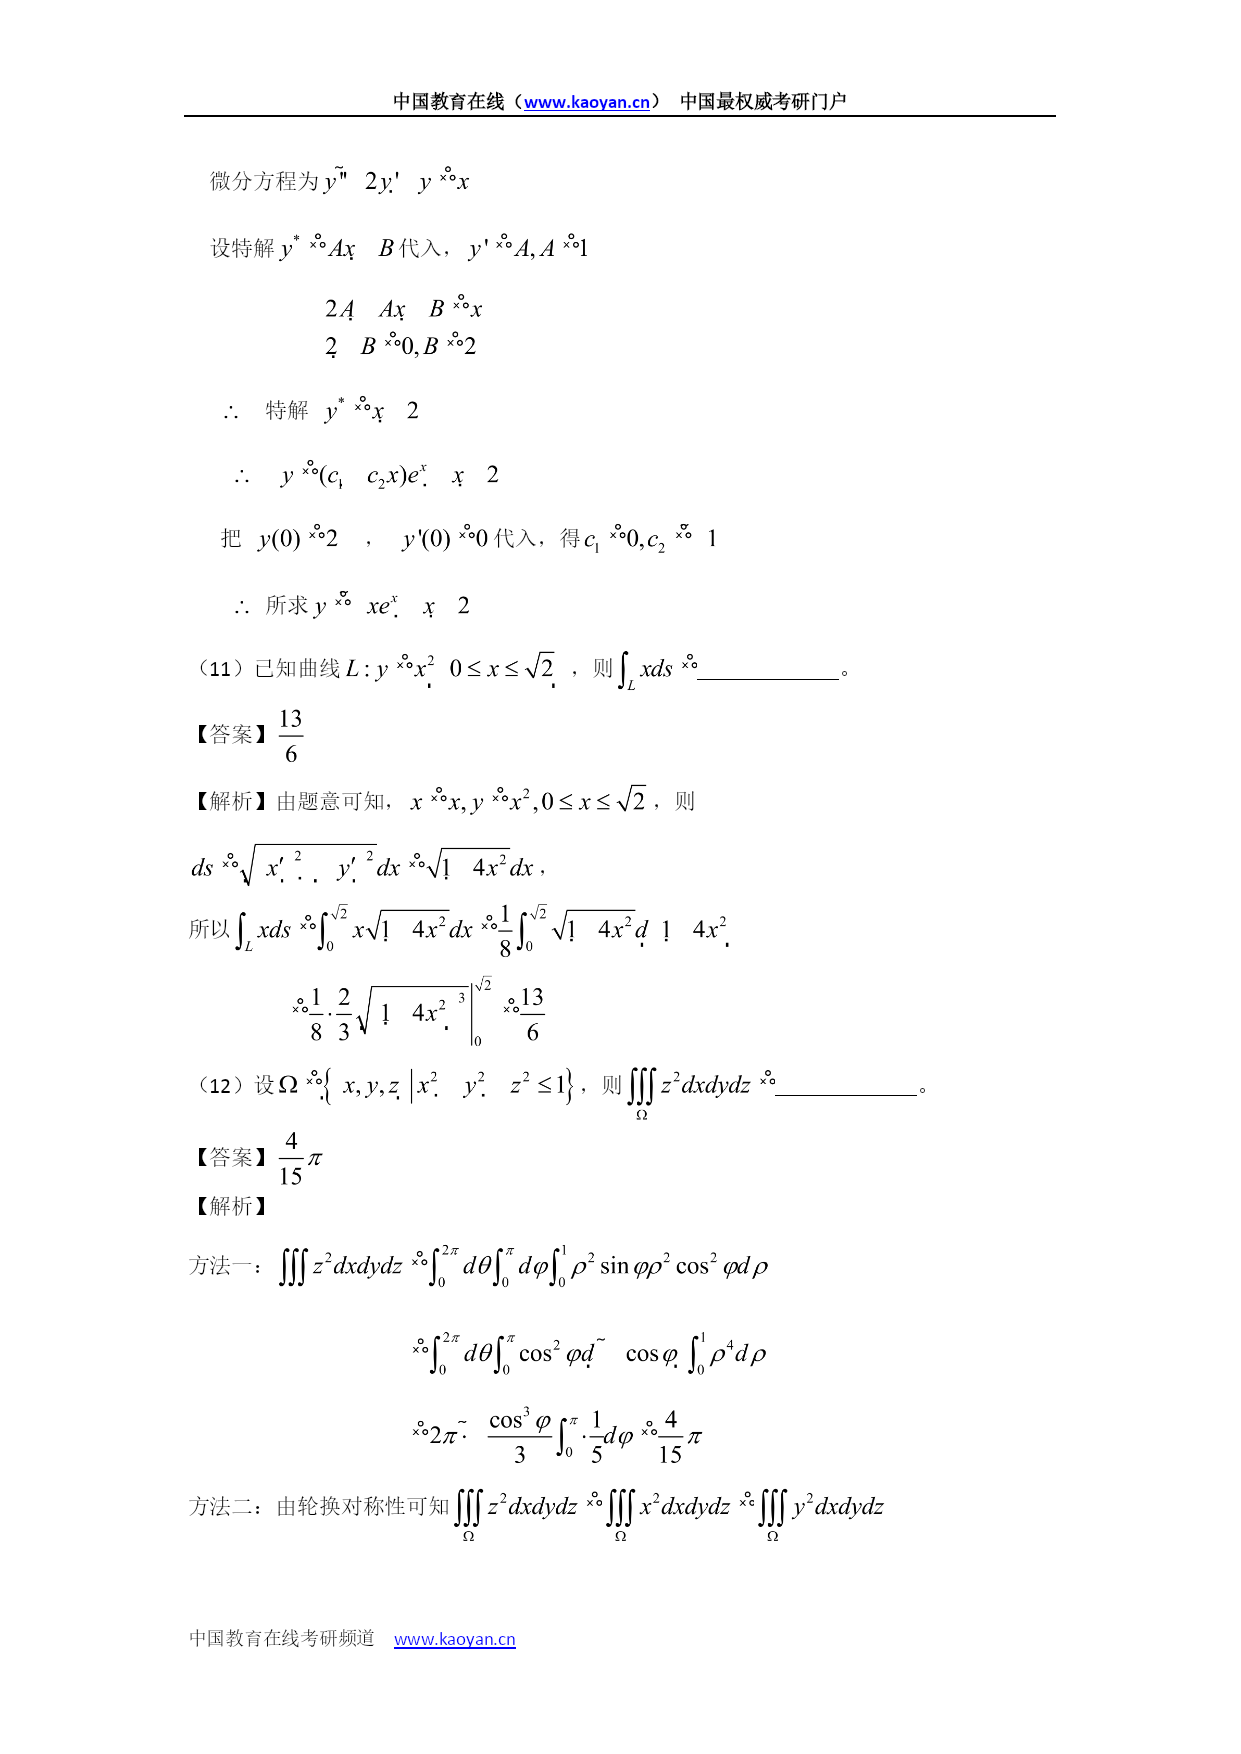 中国教育在线（www.kaoyan.cn） 中国最权威考研门户
微分方程为 y~'' 2y' y x
设特解 y* Ax B 代入， y' A, A 1
2A Ax B x
2 B 0, B 2
∴ 特解 y* x 2
∴ y (c₁ c₂x)eˣ x 2
把 y(0) 2 ， y'(0) 0 代入，得 c₁ 0, c₂ 1
∴ 所求 y xeˣ x 2
（11）已知曲线 L : y x² 0 ≤ x ≤ √2 ，则 ∫_L xds ____________。
【答案】13/6
【解析】由题意可知， x x, y x², 0 ≤ x ≤ √2 ，则
ds √(x′ ² y′ ²) dx √(1 4x²) dx ，
所以 ∫_L xds ∫₀^√2 x√(1 4x²) dx 1/8 ∫₀^√2 √(1 4x²) d 1 4x²
1/8 · 2/3 √(1 4x² ³) |₀^√2 13/6
（12）设 Ω { x, y, z | x² y² z² ≤ 1} ，则 ∭_Ω z²dxdydz ____________。
【答案】4/15 π
【解析】
方法一： ∭ z²dxdydz ∫₀^2π dθ ∫₀^π dφ ∫₀^1 ρ² sin φρ² cos² φdρ
∫₀^2π dθ ∫₀^π cos² φd ~ cos φ ∫₀^1 ρ⁴dρ
2π · ~ cos³ φ/3 ∫₀^π · 1/5 dφ 4/15 π
方法二：由轮换对称性可知 ∭_Ω z²dxdydz ∭_Ω x²dxdydz ∭_Ω y²dxdydz
中国教育在线考研频道 www.kaoyan.cn